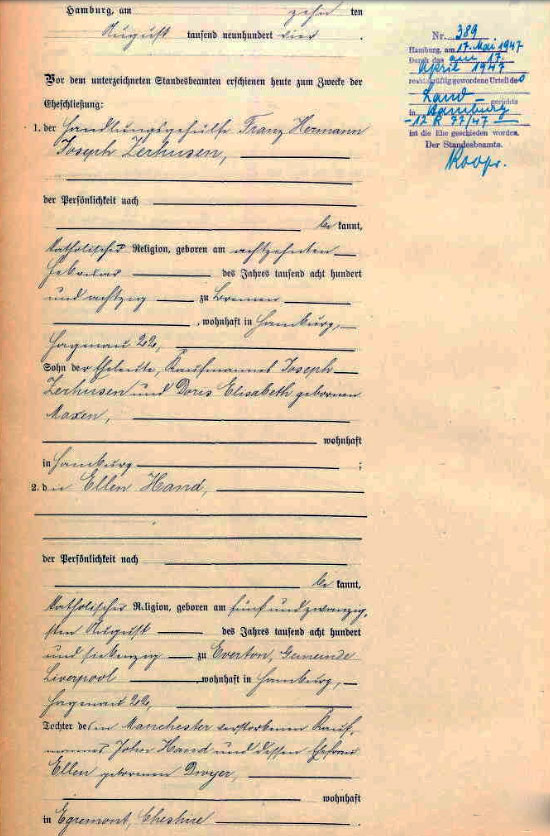 Hamburg, am zehn ten
August tausend neunhundert vier.
Vor dem unterzeichneten Standesbeamten erschienen heute zum Zwecke der
Eheschließung:
1. der Handlungsgehülfe Franz Hermann
Joseph Zerhusen,
der Persönlichkeit nach
be kannt,
katholischer Religion, geboren am achtzehnten
Februar des Jahres tausend acht hundert
und achtzig zu Bremen
, wohnhaft in Hamburg,
Hagenau 22,
Sohn der Eheleute, Kaufmannes Joseph
Zerhusen und Doris Elisabeth geborenen
Maxen,
wohnhaft
in Hamburg ;
2. die Ellen Hand,
der Persönlichkeit nach
be kannt,
katholischer Religion, geboren am fünfundzwanzig-
sten August des Jahres tausend acht hundert
und siebenzig zu Everton, Gemeinde
Liverpool , wohnhaft in Hamburg,
Hagenau 22,
Tochter des in Manchester verstorbenen Kauf-
mannes John Hand und dessen Ehefrau
Ellen geborenen Dwyer,
wohnhaft
in Egremont, Cheshire .
Nr. 389
Hamburg, am 17. Mai 1947
Durch das am 17.
April 1947
rechtskräftig gewordene Urteil des
Land gerichts
in Hamburg
- 12 R 77/47 -
ist die Ehe geschieden worden.
Der Standesbeamte.